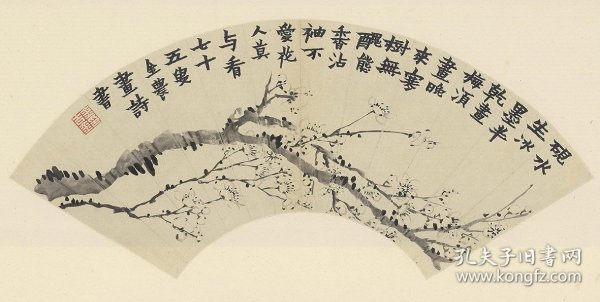 硯水
生冰
墨半
乾畫
梅須
畫晚
來寒
樹無
醜態
香沾
袖不
愛花
人莫
与看
七十
五叟
金農
畫詩
書
孔夫子旧书网
www.kongfz.com